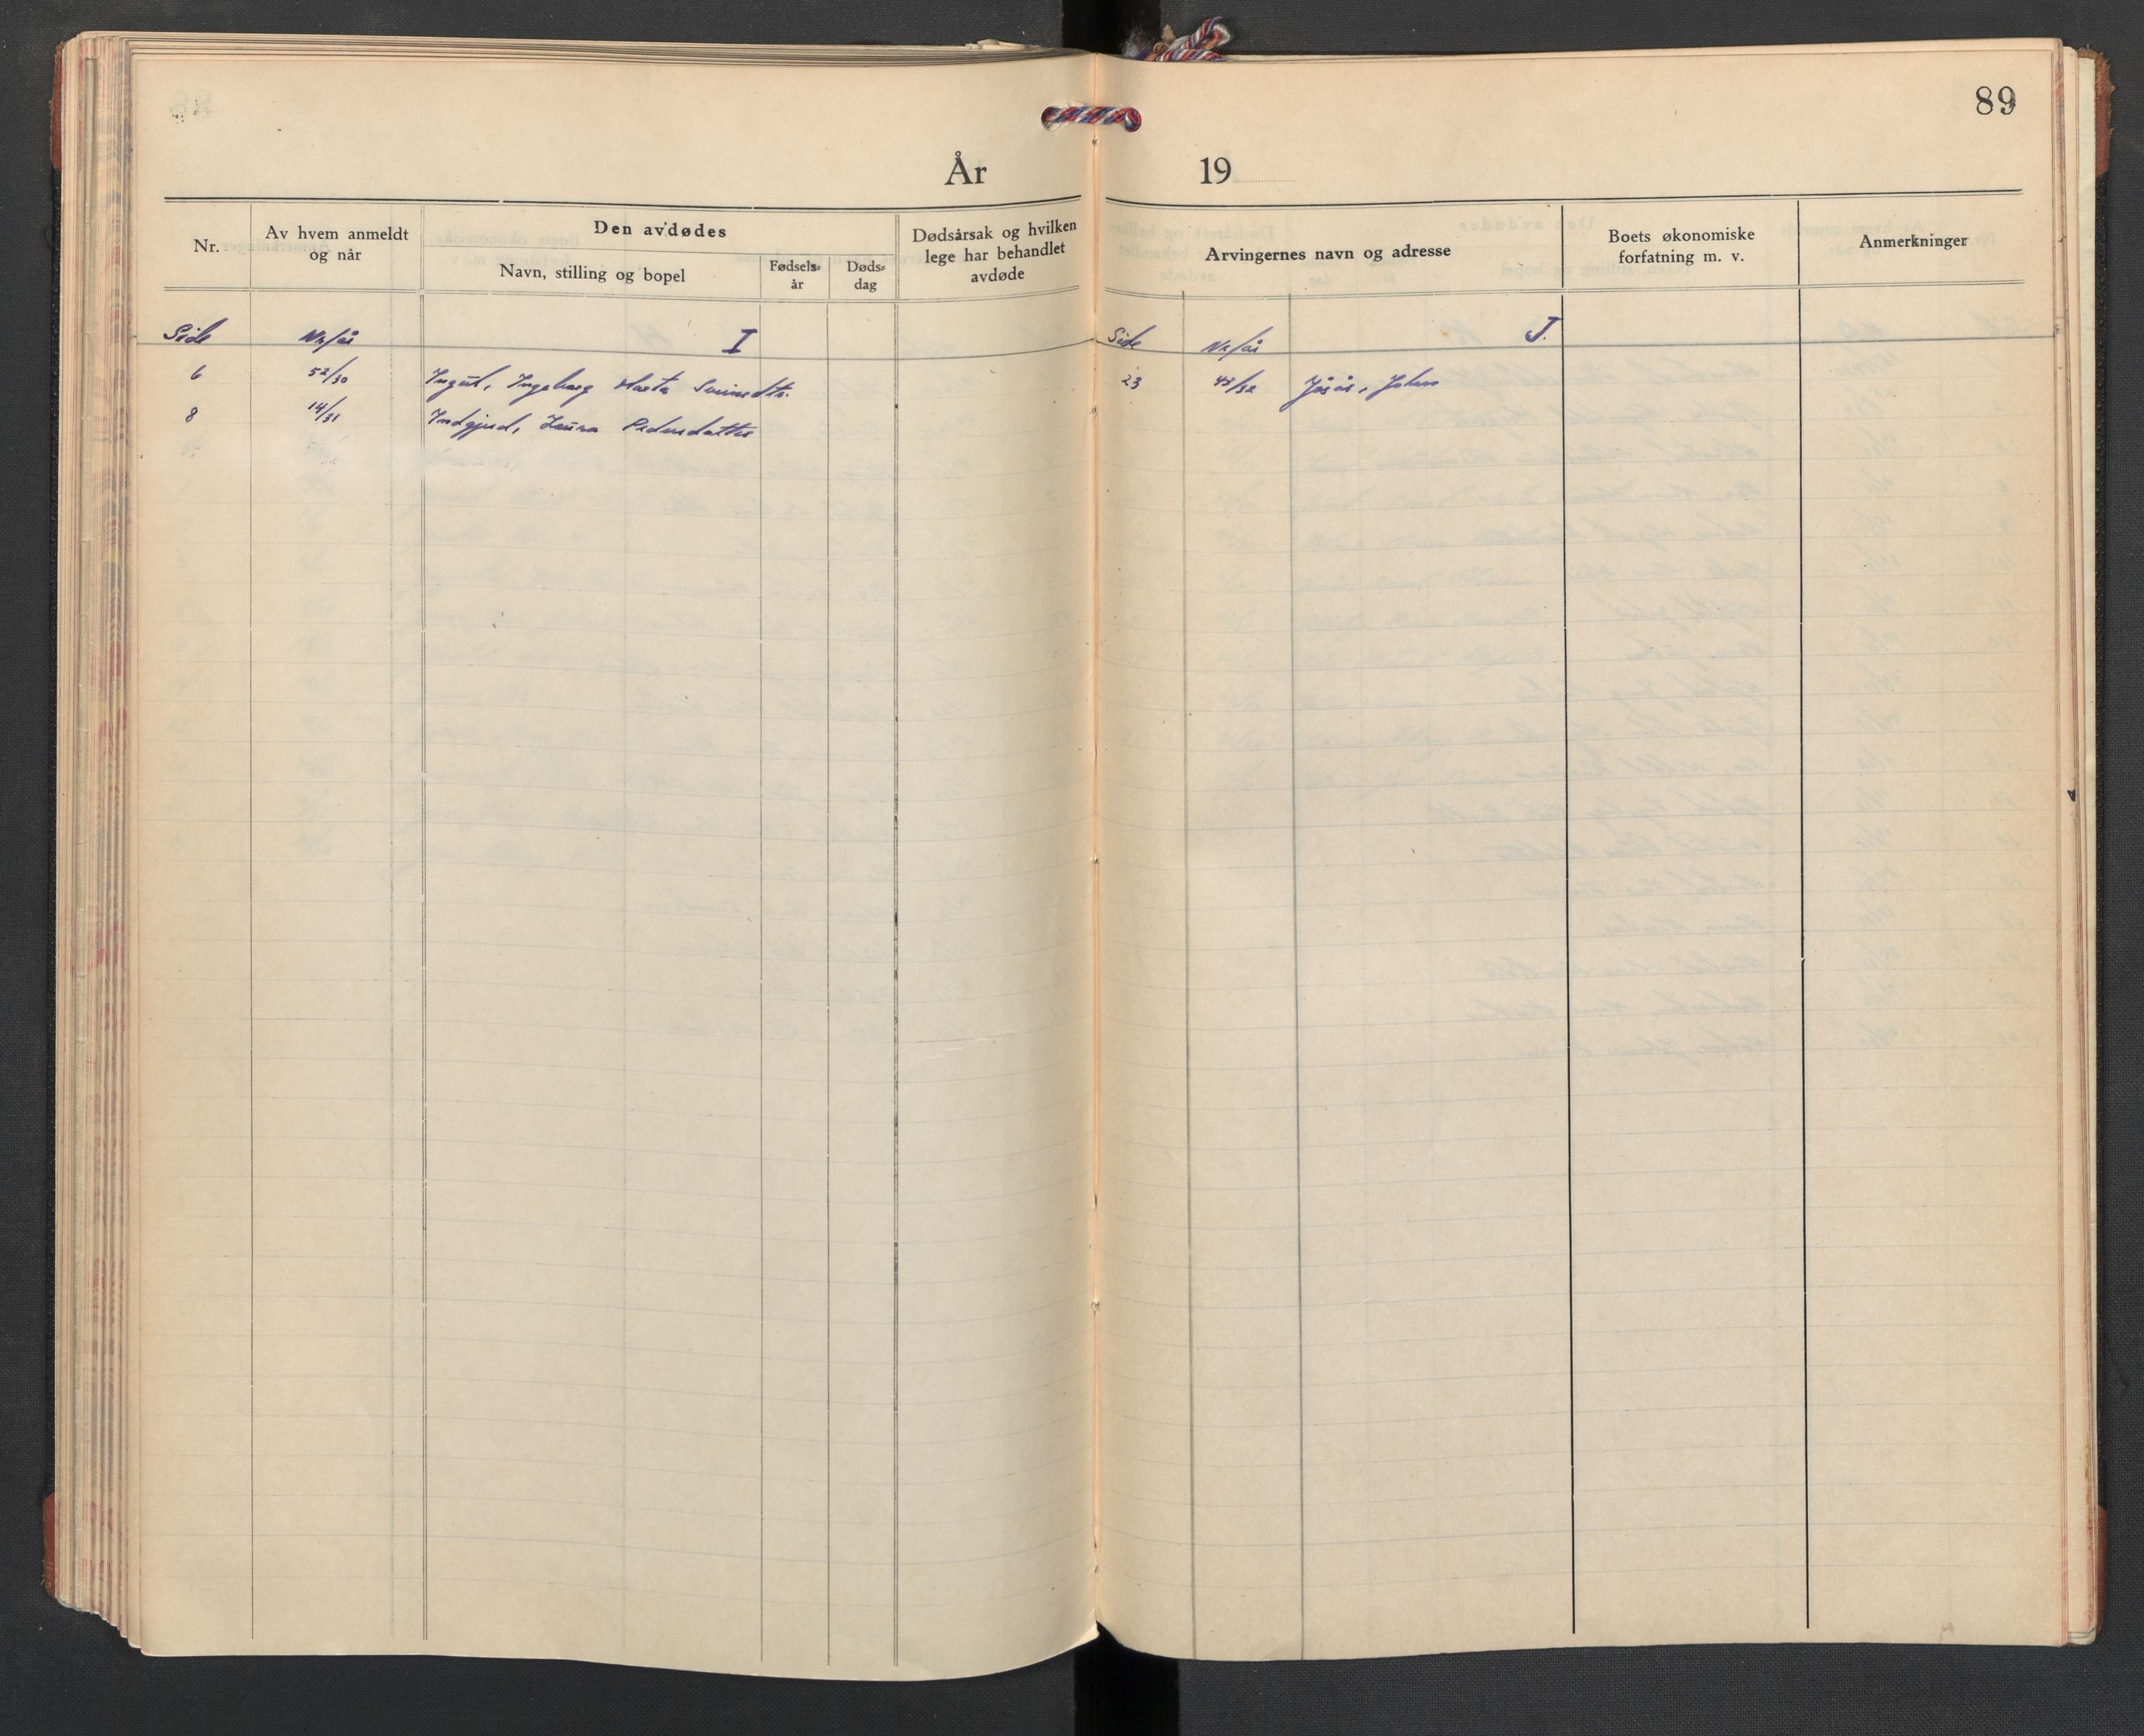 89
År 19
Nr.
Av hvem anmeldt
og når
Den avdødes
Navn, stilling og bopel
Fødsels-
år
Døds-
dag
Dødsårsak og hvilken
lege har behandlet
avdøde
Arvingernes navn og adresse
Boets økonomiske
forfatning m. v.
Anmerkninger
Side Nr/år I
6 52/30 Ingul, Ingeborg Marta
8 14/31 Indgjerd, Laura Pedersdatter
Side Nr/år J.
23 43/32 Jøsås, Johan